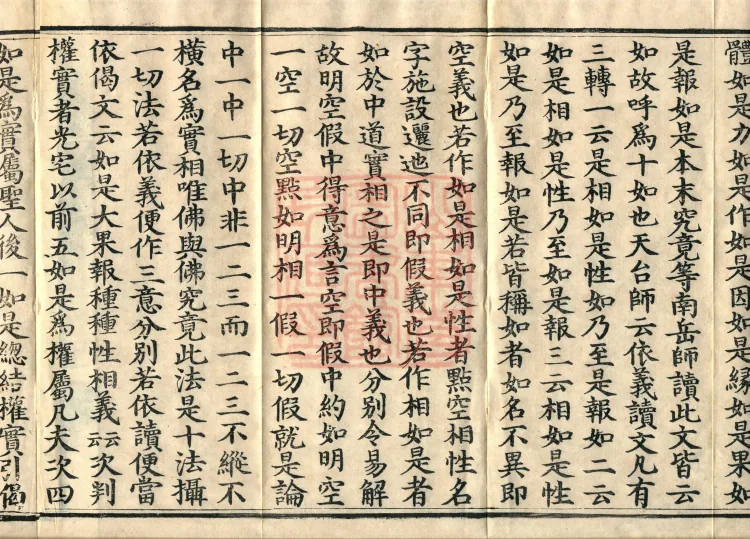 體如是力如是作如是因如是緣如是果如
是報如是本末究竟等南岳師讀此文皆云
如故呼爲十如也天台師云依義讀文凡有
三轉一云是相如是性如乃至是報如二云
如是相如是性乃至如是報三云相如是性
如是乃至報如是若皆稱如者如名不異即
空義也若作如是相如是性者點空相性名
字施設邐迆不同即假義也若作相如是者
如於中道實相之是即中義也分別令易解
故明空假中得意爲言空即假中約如明空
一空一切空點如明相一假一切假就是論
中一中一切中非一二三而一二三不縱不
橫名爲實相唯佛與佛究竟此法是十法攝
一切法若依義便作三意分別若依讀便當
依偈文云如是大果報種種性相義云云次判
權實者光宅以前五如是爲權屬凡夫次四
如是爲實屬聖人後一如是總結權實引偈